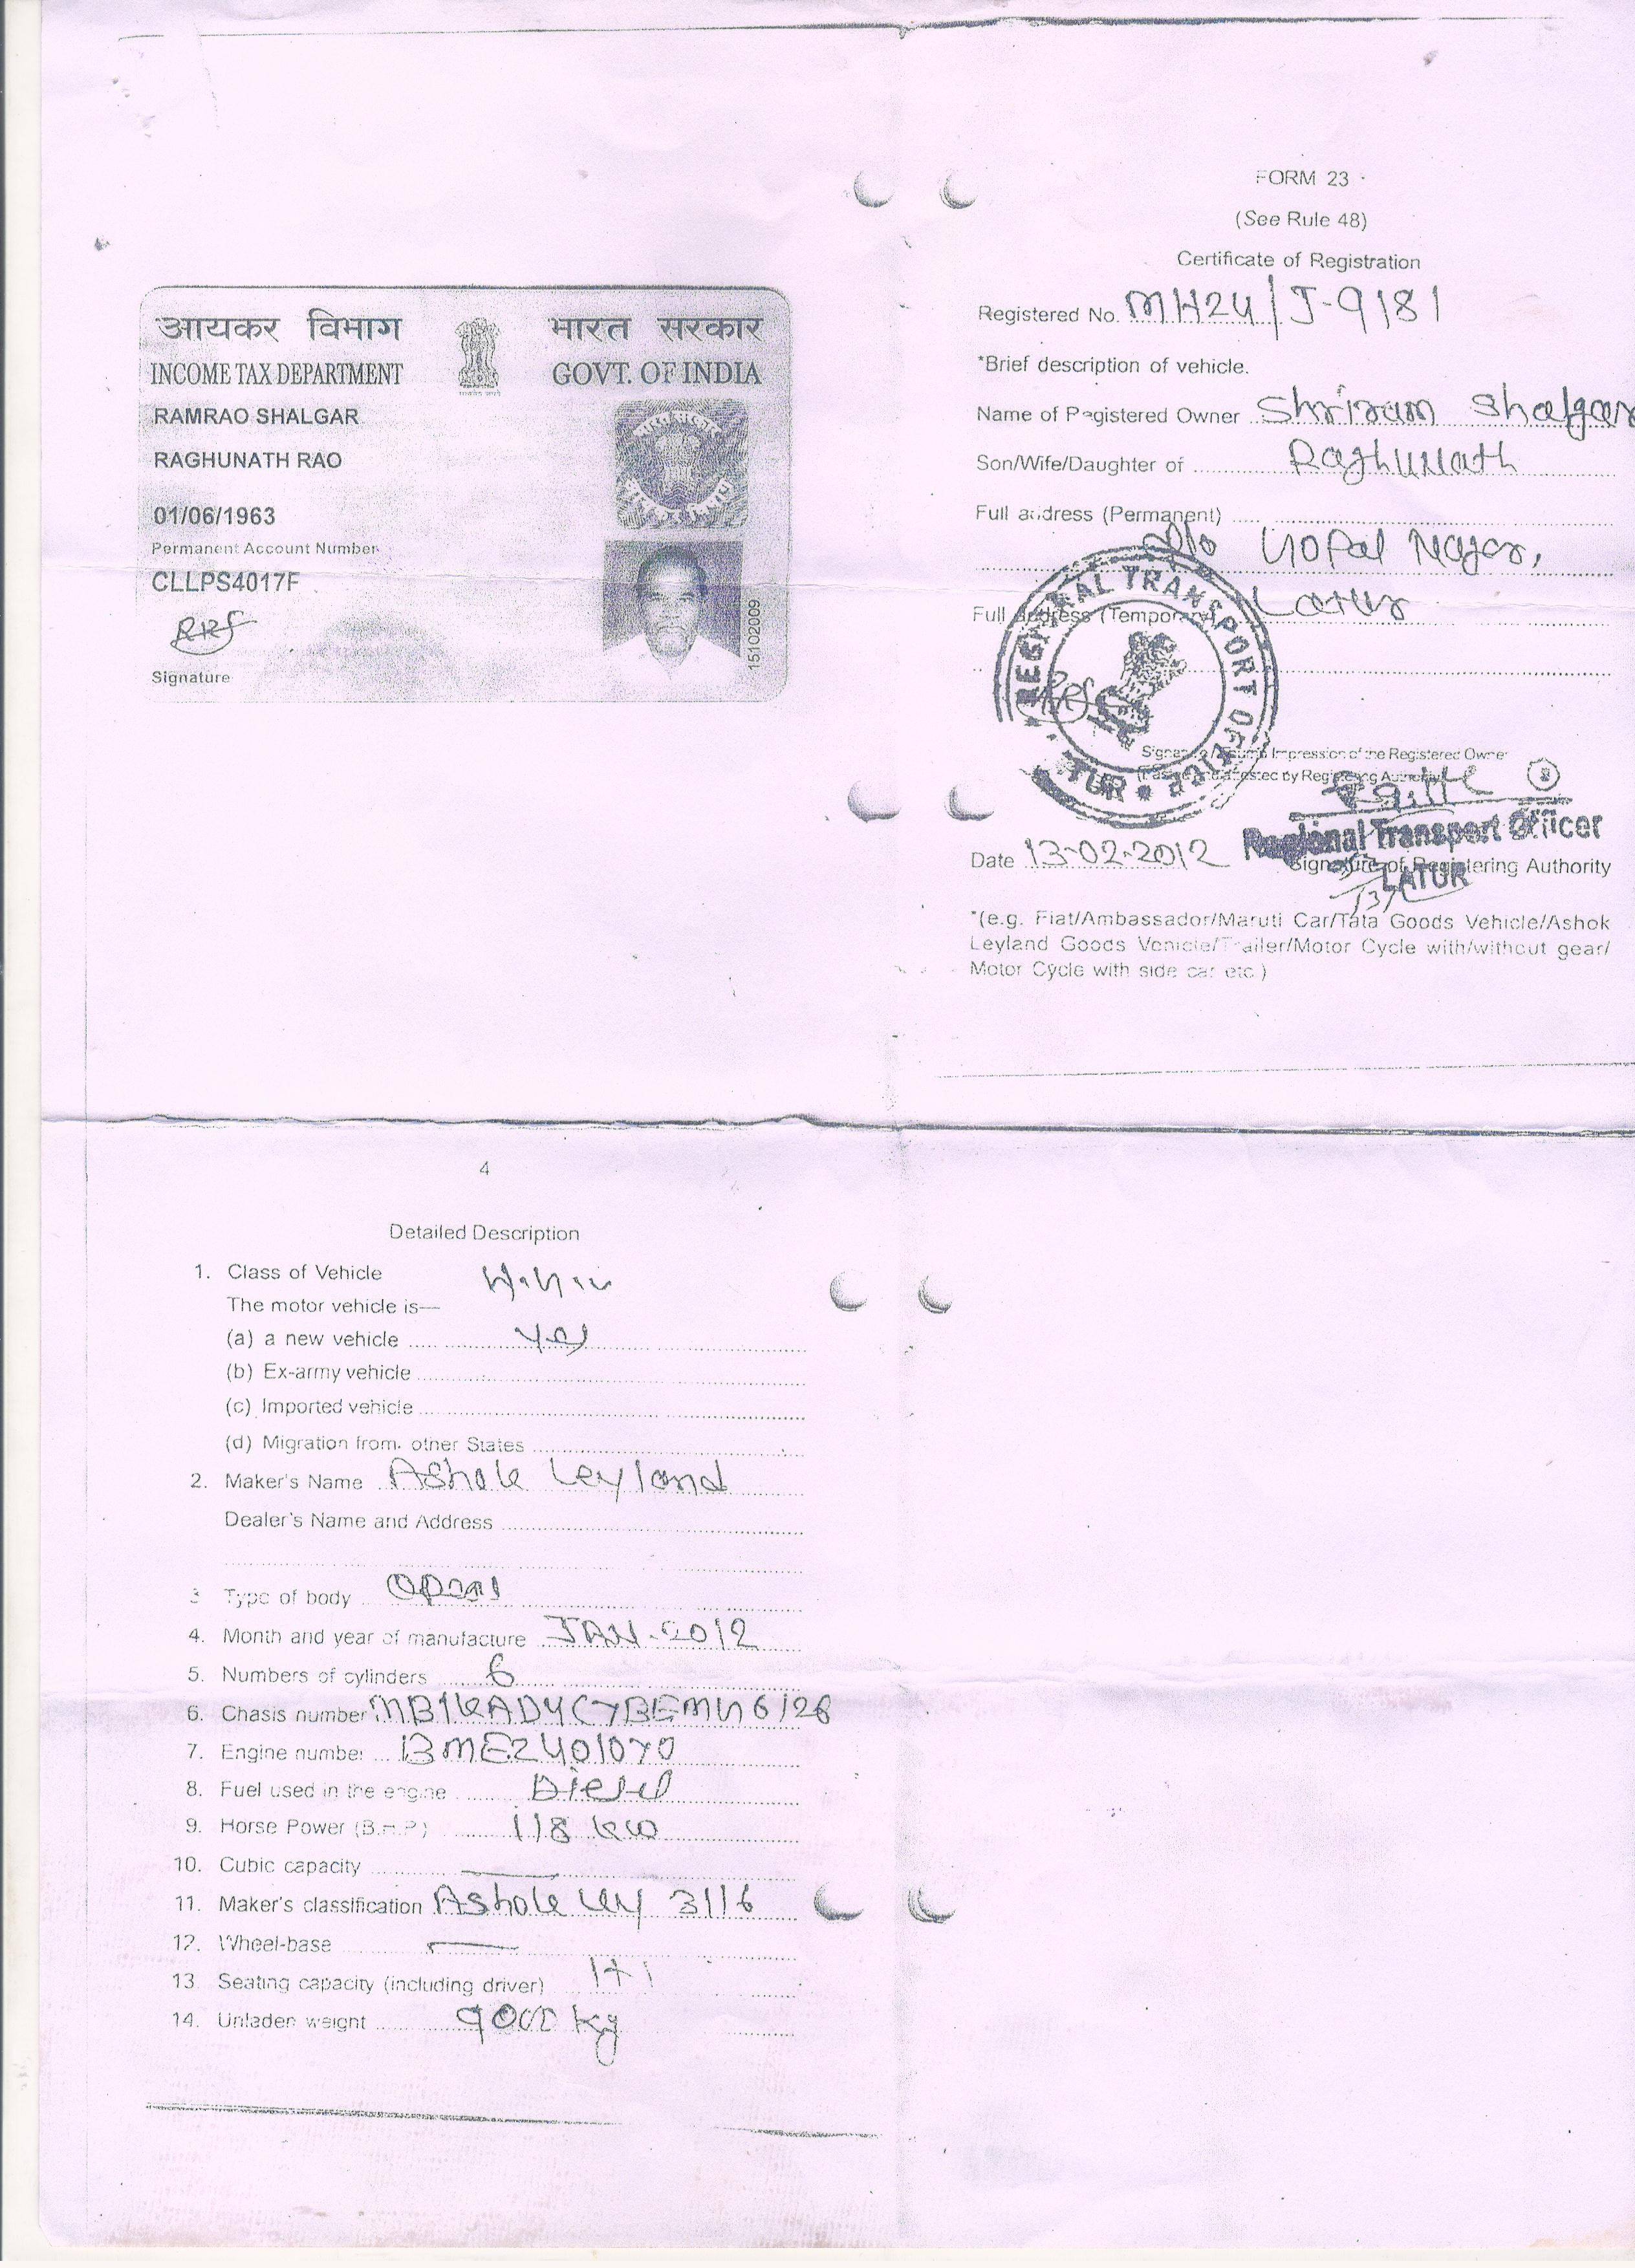 आयकर विभाग भारत सरकार
INCOME TAX DEPARTMENT GOVT. OF INDIA
RAMRAO SHALGAR
RAGHUNATH RAO
01/06/1963
Permanent Account Number
CLLPS4017F
Signature
15102009
FORM 23
(See Rule 48)
Certificate of Registration
Registered No. MH24/J-9181
*Brief description of vehicle.
Name of Registered Owner Shriram Shalgar
Son/Wife/Daughter of Raghunath
Full address (Permanent)
Gopal Nagar,
Full address (Temporary) Latur
REGIONAL TRANSPORT OFFICE
Signature / Thumb Impression of the Registered Owner
Regional Transport Officer
Date 13-02-2012 Signature of Registering Authority
LATUR
*(e.g. Fiat/Ambassador/Maruti Car/Tata Goods Vehicle/Ashok
Leyland Goods Vehicle/Trailer/Motor Cycle with/without gear/
Motor Cycle with side car etc.)
4
Detailed Description
1. Class of Vehicle
The motor vehicle is—
(a) a new vehicle yes
(b) Ex-army vehicle
(c) Imported vehicle
(d) Migration from other States
2. Maker's Name Ashok Leyland
Dealer's Name and Address
3 Type of body open
4. Month and year of manufacture JAN-2012
5. Numbers of cylinders 6
6. Chasis number
7. Engine number
8. Fuel used in the engine Diesel
9. Horse Power (B.H.P) 118 kw
10. Cubic capacity
11. Maker's classification Ashok Ley 3116
12. Wheel-base
13. Seating capacity (including driver) 1+1
14. Unladen weight 9000 kg